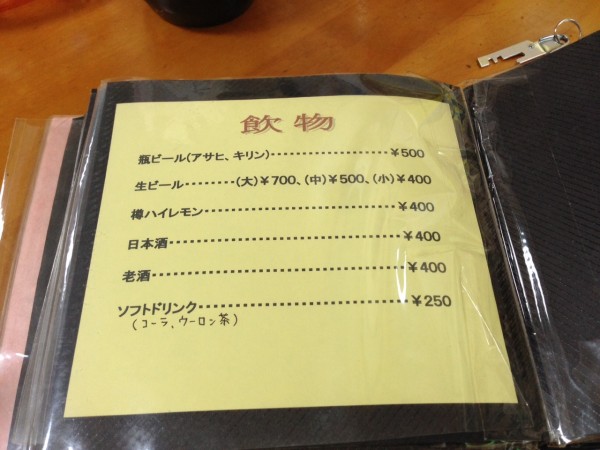 飲物
瓶ビール(アサヒ、キリン)・・・・・・・・・・・・・・・・・・・・・・¥500
生ビール・・・・・・・・(大)¥700、(中)¥500、(小)¥400
樽ハイレモン・・・・・・・・・・・・・・・・・・・・・・・・・・・・・・¥400
日本酒・・・・・・・・・・・・・・・・・・・・・・・・・・・・・・・・・・・・¥400
老酒・・・・・・・・・・・・・・・・・・・・・・・・・・・・・・・・・・・・・・・¥400
ソフトドリンク・・・・・・・・・・・・・・・・・・・・・・・・・・・・・・¥250
(コーラ、ウーロン茶)